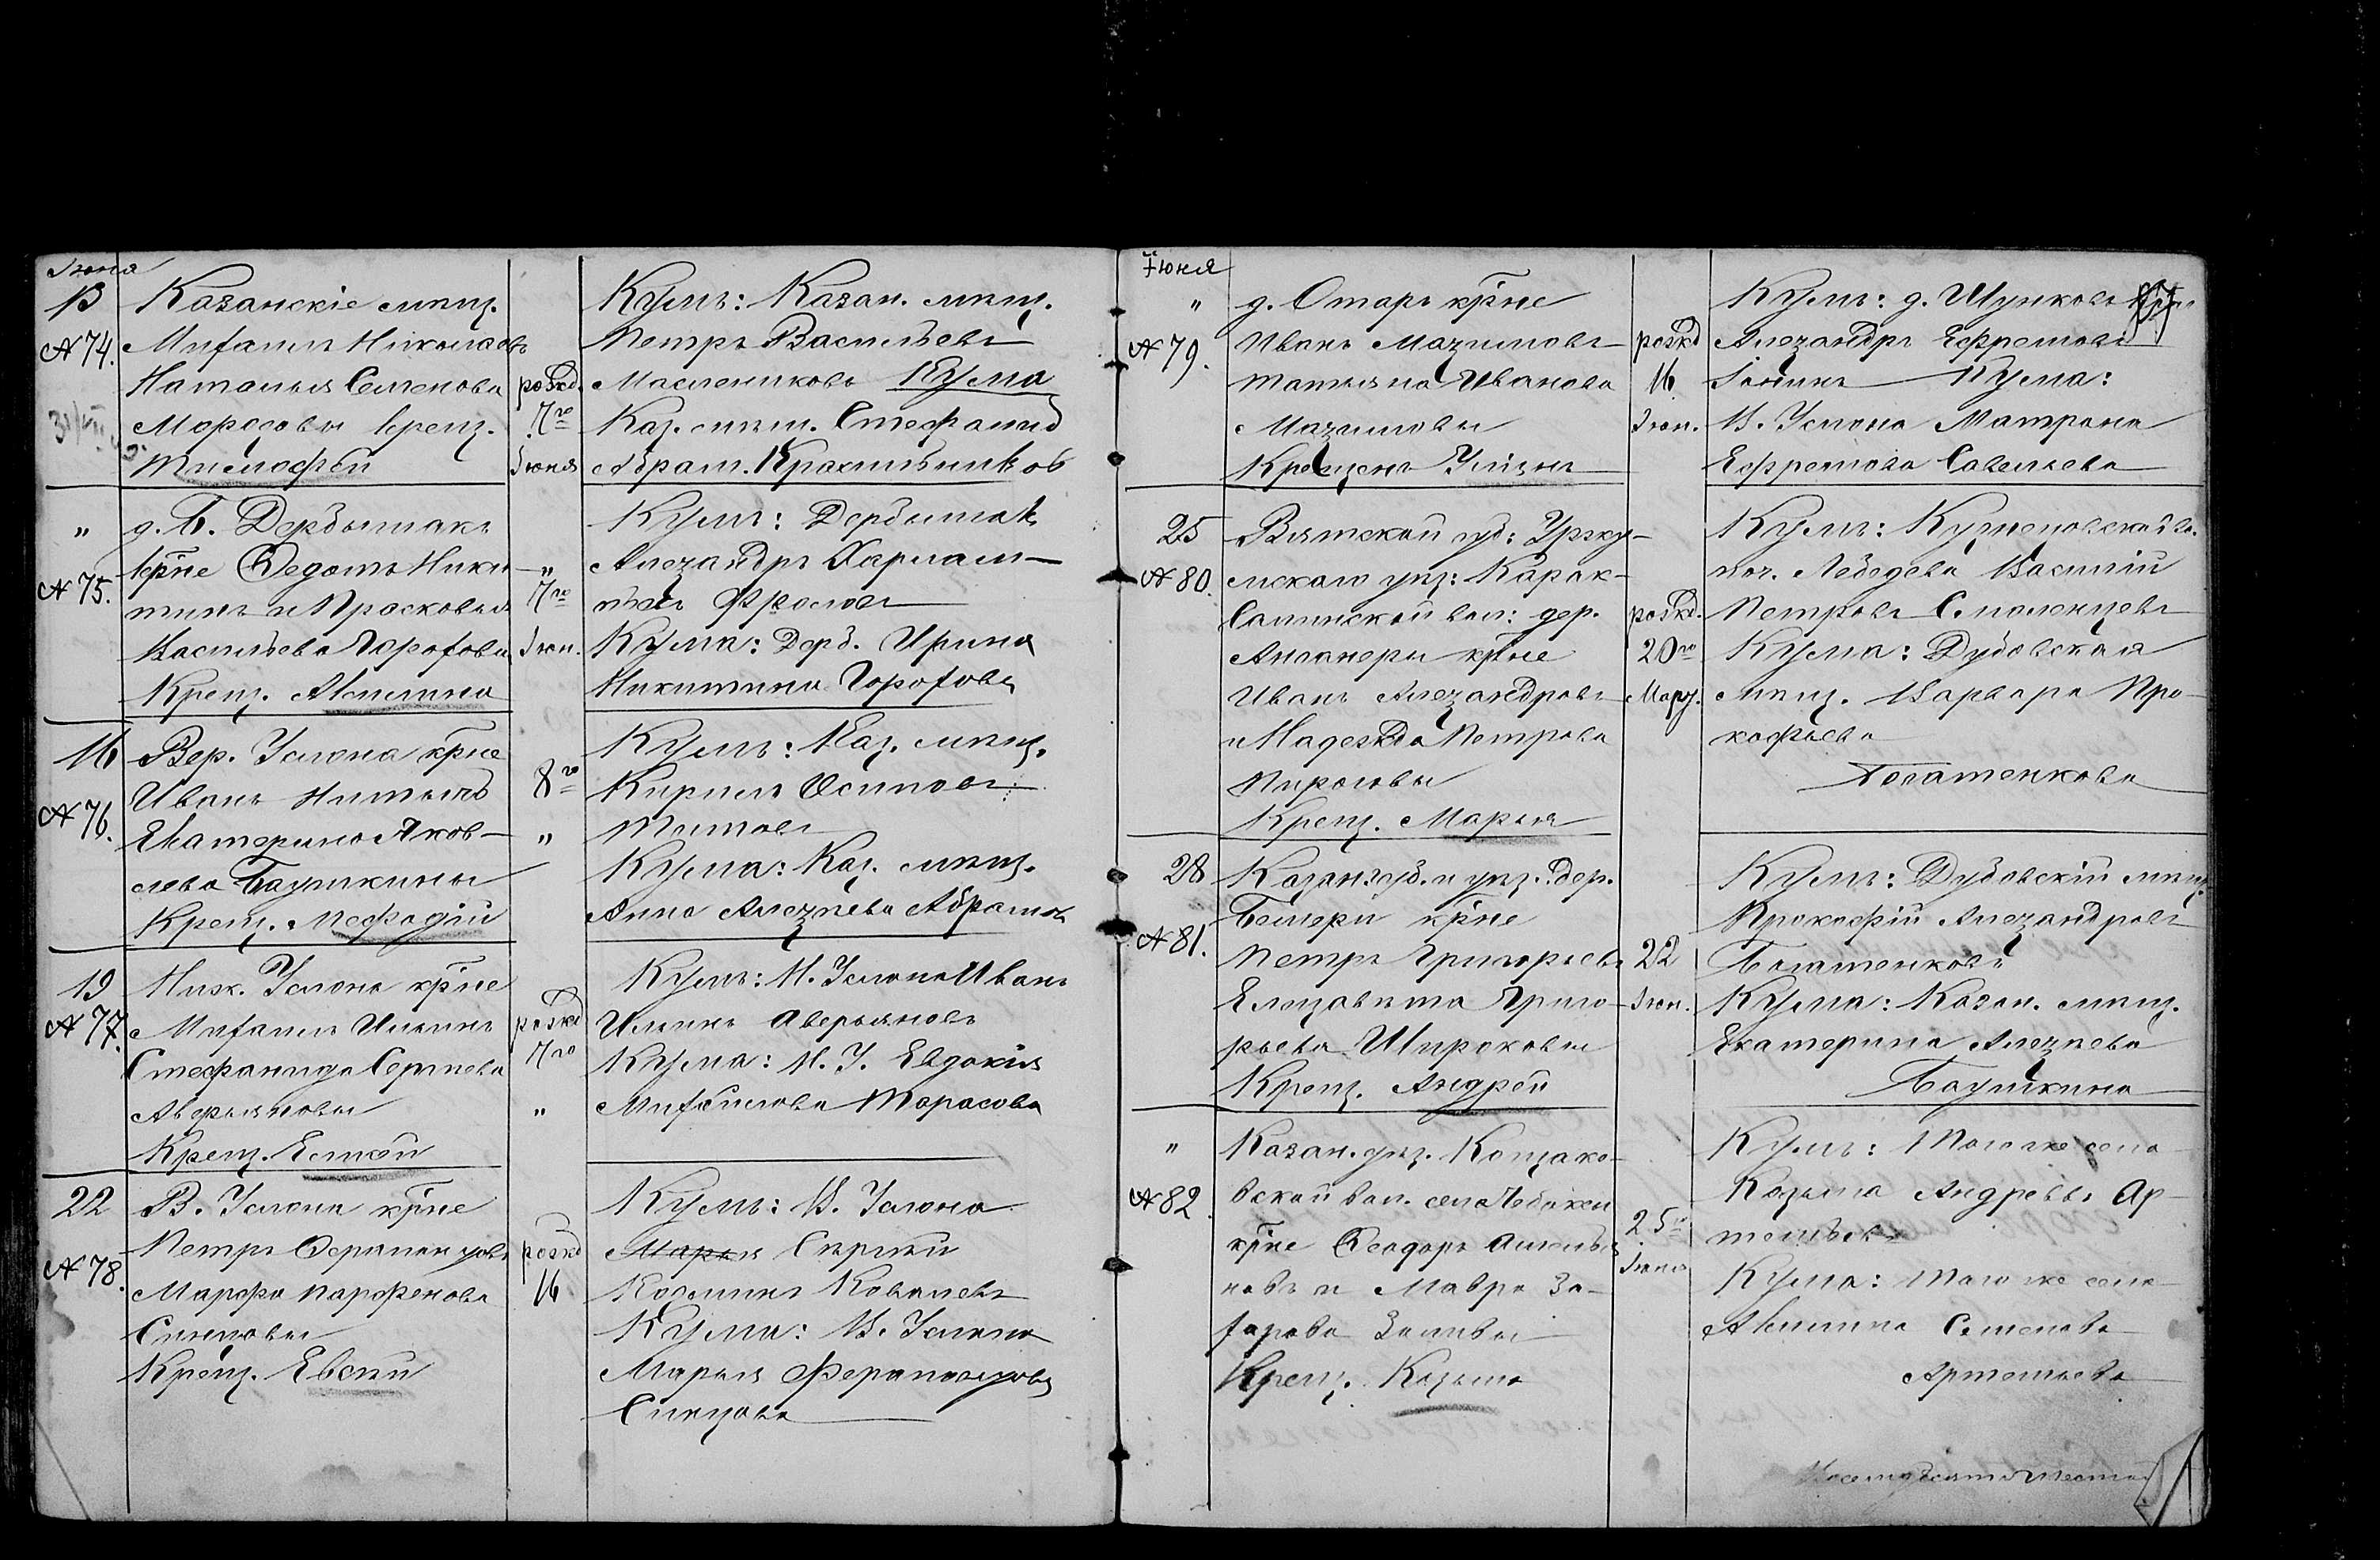 Iюня
13 Казанскіе мѣщ.
№ 74. Михаилъ Николаевъ
Наталья Семенова
Морозовы Крещ.
Тимофей
рожд.
7го
Iюня
Кумъ: Казан. мѣщ.
Петръ Васильевъ
Маслениковъ Кума
Каз. мѣщ. Стефанид
Абрам. Красильников
" д. Б. Дербышак
№ 75. кр̃не Федотъ Ники-
тинъ и Прасковья
Васильева Горохова
Крещ. Акилина
"
7го
Iюн.
Кумъ: Дербышак
Александръ Харлам-
пьев Фролов
Кума: Дерб. Ирина
Никитина Горохова
16 Вер. Услона кр̃не
№ 76. Иванъ
Екатерина Яков-
лева Баушкины
Крещ. Мефодій
8го
"
Кумъ: Каз. мѣщ.
Кирилъ Осиповъ
Титовъ
Кума: Каз. мѣщ.
Анна Алексѣева Абрамов
19 Ниж. Услона кр̃не
№ 77. Михаилъ Ильинъ
Стефанида Сергѣева
Аверьяновы
Крещ. Елисей
рожд
7го
"
Кумъ: Н. Услона Иванъ
Ильинъ Аверьяновъ
Кума: Н. У. Евдокия
Михайлова Тарасова
22 В. Услона кр̃не
№ 78. Петръ Ферапонтовъ
Марфа Парфенова
Синцовы
Крещ.
рожд
16
Кумъ: В. Услона
Марья Сергѣй
Козминъ Ковалевъ
Кума: В. Услона
Марья Ферапонтова
Синцова
Iюня
" д. Отаръ кр̃не
№ 79. Иванъ Мазимовъ
Татьяна Иванова
Мазимовы
Крещенъ
рожд
16
Iюн.
Кумъ: д. Шунковъ
Александръ Ефремовъ
Кума:
В. Услона Матрона
Ефремова Савельева
25 Вятской губ: Уржу-
№ 80. мскаго уѣз: Карак-
Салинской вол: дер.
кр̃не
Иванъ Александровъ
и Надежда Петрова
Пироговы
Крещ. Марья
рожд.
20го
Март.
Кумъ:
поч. Лебедева Василій
Петровъ Смоленцевъ
Кума: Дубовская
мѣщ. Варвара Про-
кофьева
Богатенкова
28 Казан. губ. и уѣз. дер.
№ 81. кр̃не
Петръ Григорьевъ
Елизавета Григо-
рьева Широковы
Крещ. Андрей
22
Iюн.
Кумъ: Дубовскій мѣщ.
Прокофій Александровъ
Богатенковъ
Кума: Казан. мѣщ.
Екатерина Алексѣева
Баушкина
" Казан. уѣз. Кощако-
№ 82. вской вол. села
кр̃не Феодоръ
новъ и Мавра За-
харова
Крещ. Козьма
25го
Iюня
Кумъ: Того же села
Козьма Андреевъ Ар-
темьев
Кума: того же села
Акилина Семенова
Артемьева